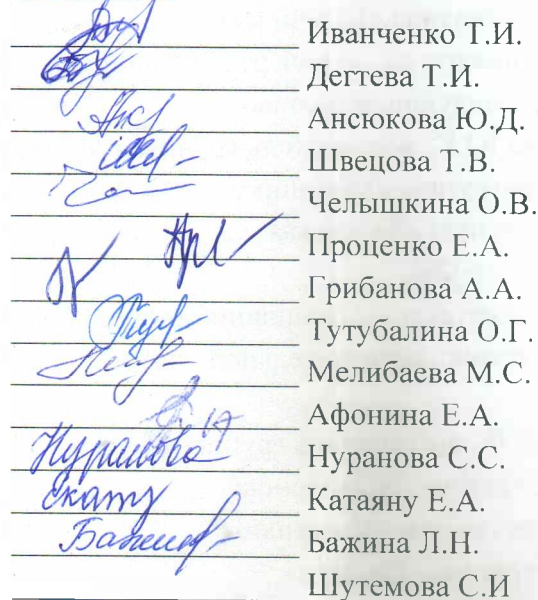 Иванченко Т.И.
Дегтева Т.И.
Ансюкова Ю.Д.
Швецова Т.В.
Челышкина О.В.
Проценко Е.А.
Грибанова А.А.
Тутубалина О.Г.
Мелибаева М.С.
Афонина Е.А.
Нуранова Нуранова С.С.
Катаяну Е.А.
Бажина Л.Н.
Шутемова С.И